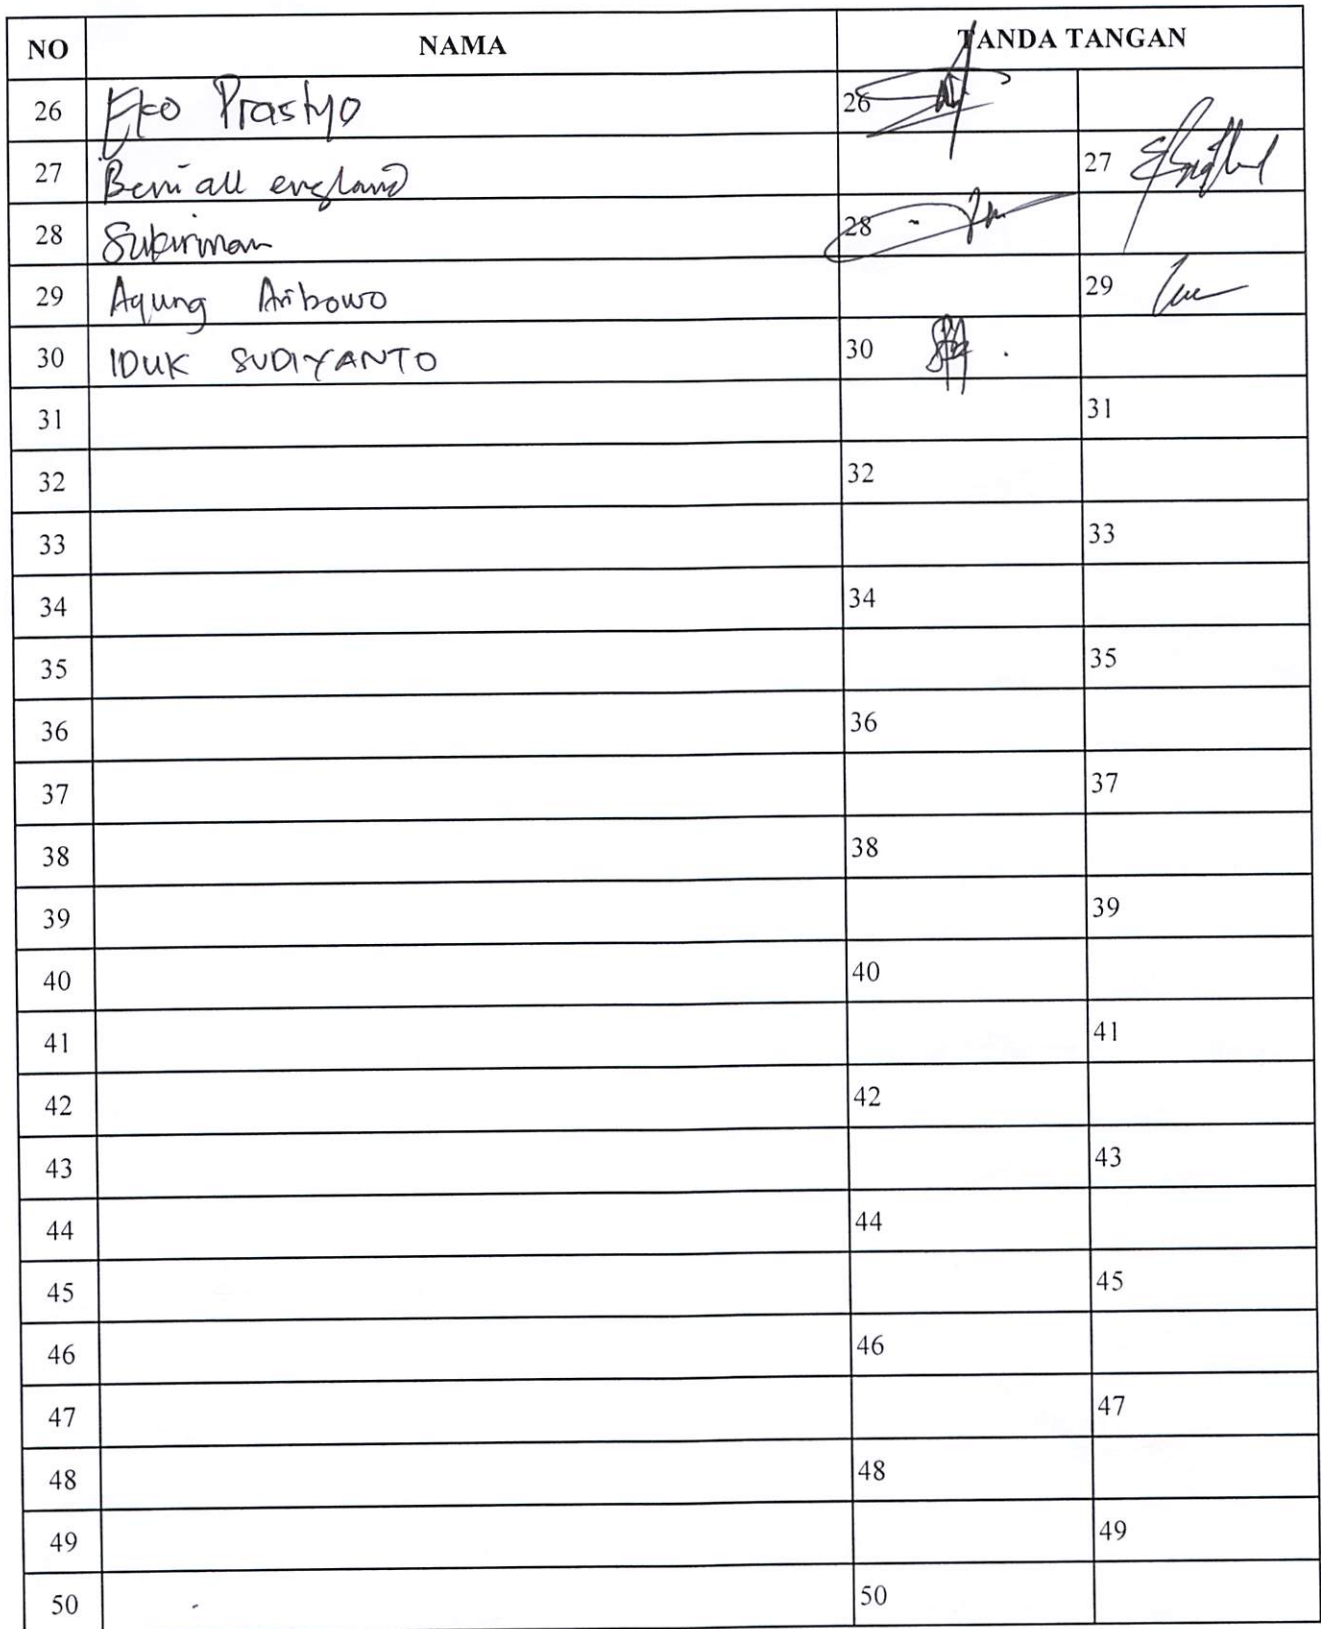 NO NAMA TANDA TANGAN
26 Eko Prastyo 26
27 Beni all england 27
28 28
29 Agung Aribowo 29
30 IDUK SUDIYANTO 30
31 31
32 32
33 33
34 34
35 35
36 36
37 37
38 38
39 39
40 40
41 41
42 42
43 43
44 44
45 45
46 46
47 47
48 48
49 49
50 50